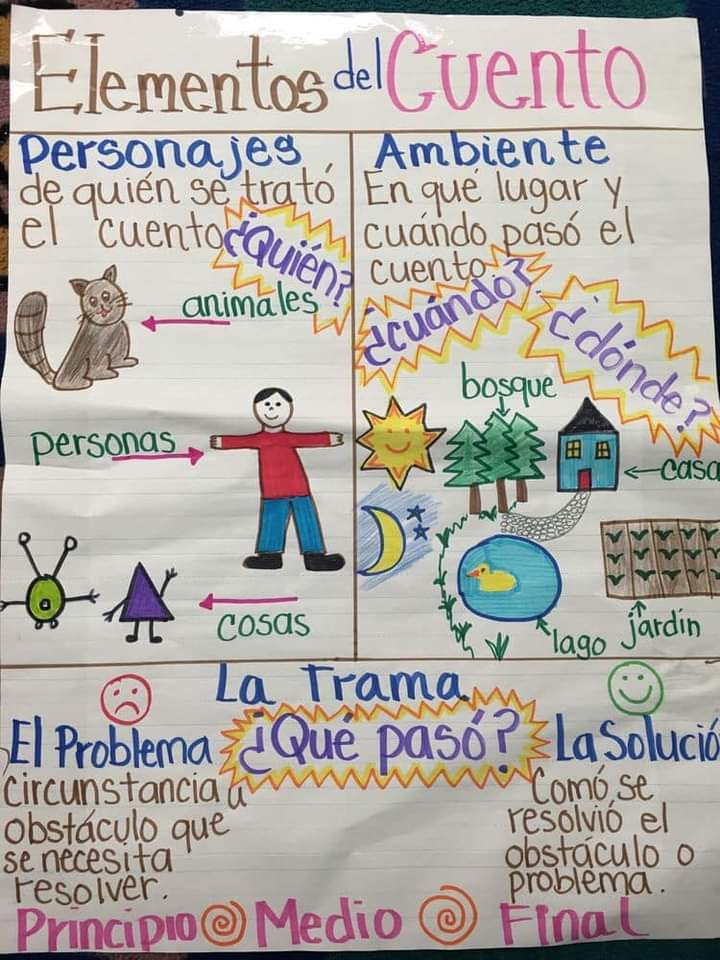 Elementos del Cuento
Personajes
de quién se trató
el cuento
¿Quién?
animales
personas
cosas
Ambiente
En qué lugar y
cuándo pasó el
cuento.
¿cuándo?
¿dónde?
bosque
casa
lago
jardín
La Trama
¿Qué pasó?
El Problema
circunstancia u
obstáculo que
se necesita
resolver.
La Solució
Comó se
resolvió el
obstáculo o
problema.
Principio Medio Final